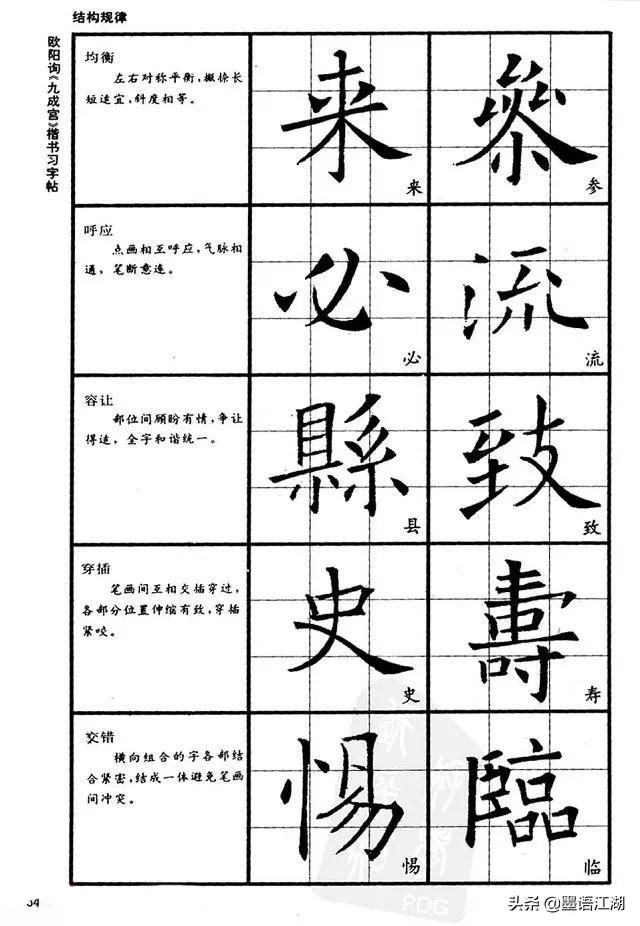 结构规律
欧阳询《九成宫》楷书习字帖
均衡
左右对称平衡，撇捺长
短适宜，斜度相等。
来
来
參
参
呼应
点画相互呼应，气脉相
通，笔断意连。
必
必
流
流
容让
部位间顾盼有情，争让
得适，全字和谐统一。
縣
县
致
致
穿插
笔画间互相交插穿过，
各部分位置伸缩有致，穿插
紧咬。
史
史
壽
寿
交错
横向组合的字各部结
合紧密，结成一体避免笔画
间冲突。
惕
惕
臨
临
PDG
头条@墨语江湖